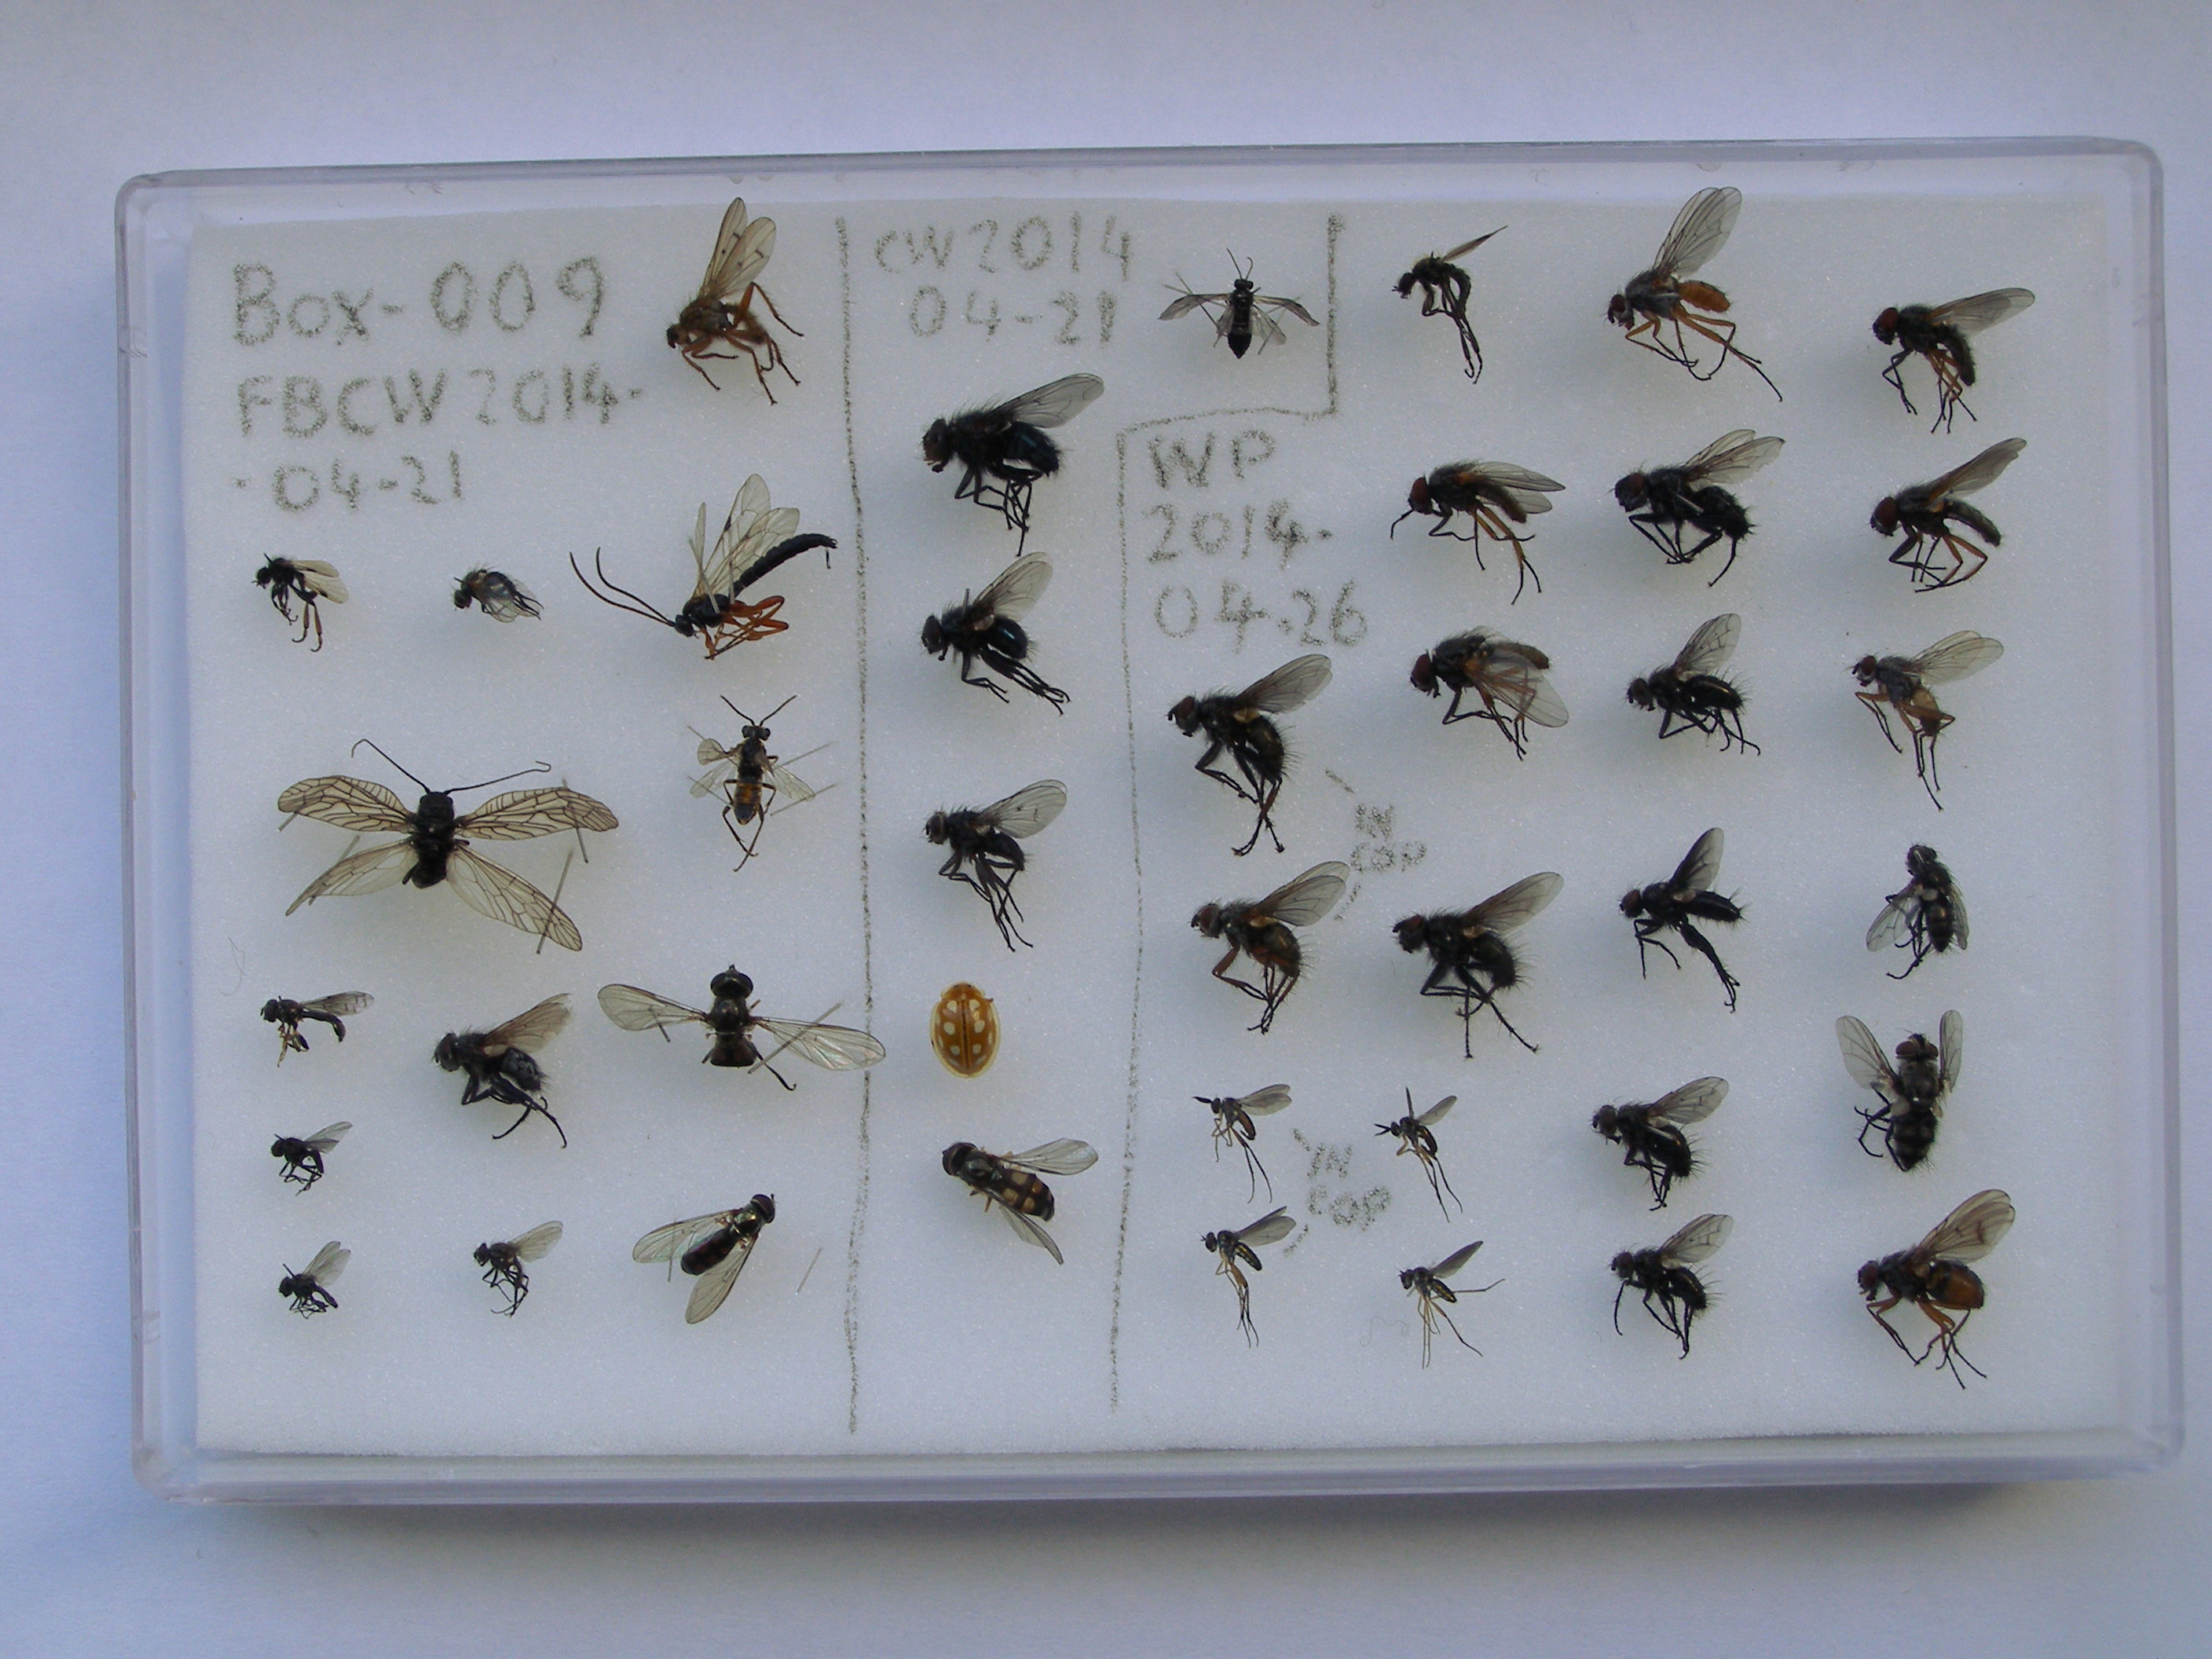 Box-009
FBCW 2014-
-04-21
CW 2014
04-21
WP
2014-
04-26
IN
COP
IN
COP